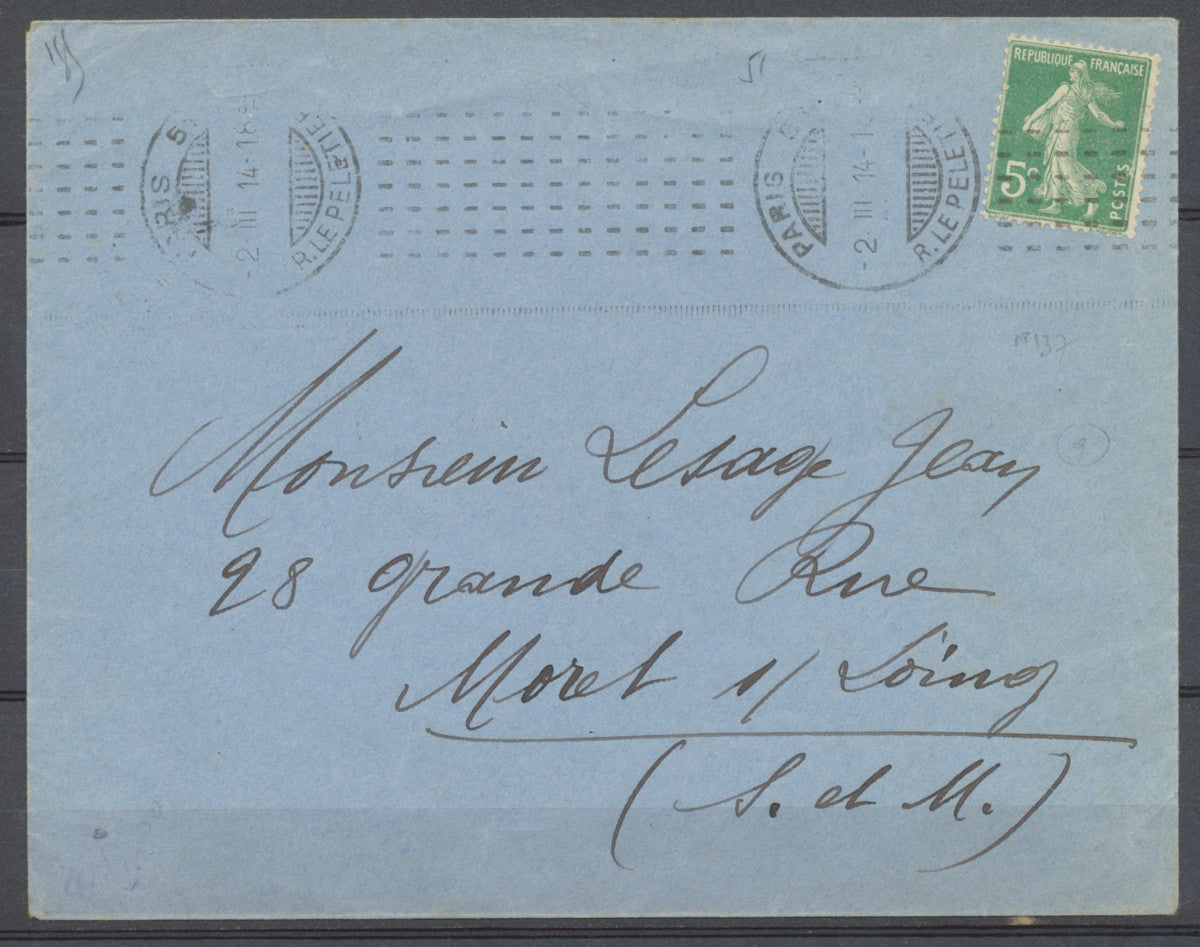 REPUBLIQUE FRANÇAISE
5c
POSTES
PARIS
R. LE PELETIER
-2 III 14-18
PARIS
R. LE PELETIER
-2 III 14-1
Monsieur Lesage Jean
28 grande Rue
Moret s/ Loing
(S. et M.)